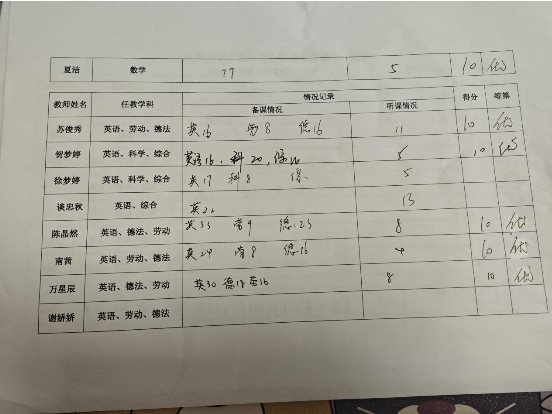 夏洁 数学 27 5 10 优
教师姓名 任教学科 情况记录 得分 等第
备课情况 听课情况
苏俊秀 英语、劳动、德法 英16 劳8 德16 11 10 优
贺梦婷 英语、科学、综合 英语16、科20、综16 5 10 优
徐梦婷 英语、科学、综合 英17 科8 综 5
谈忠秋 英语、综合 英22 13
陈晶然 英语、德法、劳动 英33 劳9 德23 8 10 优
南茜 英语、劳动、德法 英24 劳8 德16 4 10 优
万星辰 英语、德法、劳动 英30 德18 劳16 8 10 优
谢娇娇 英语、劳动、德法